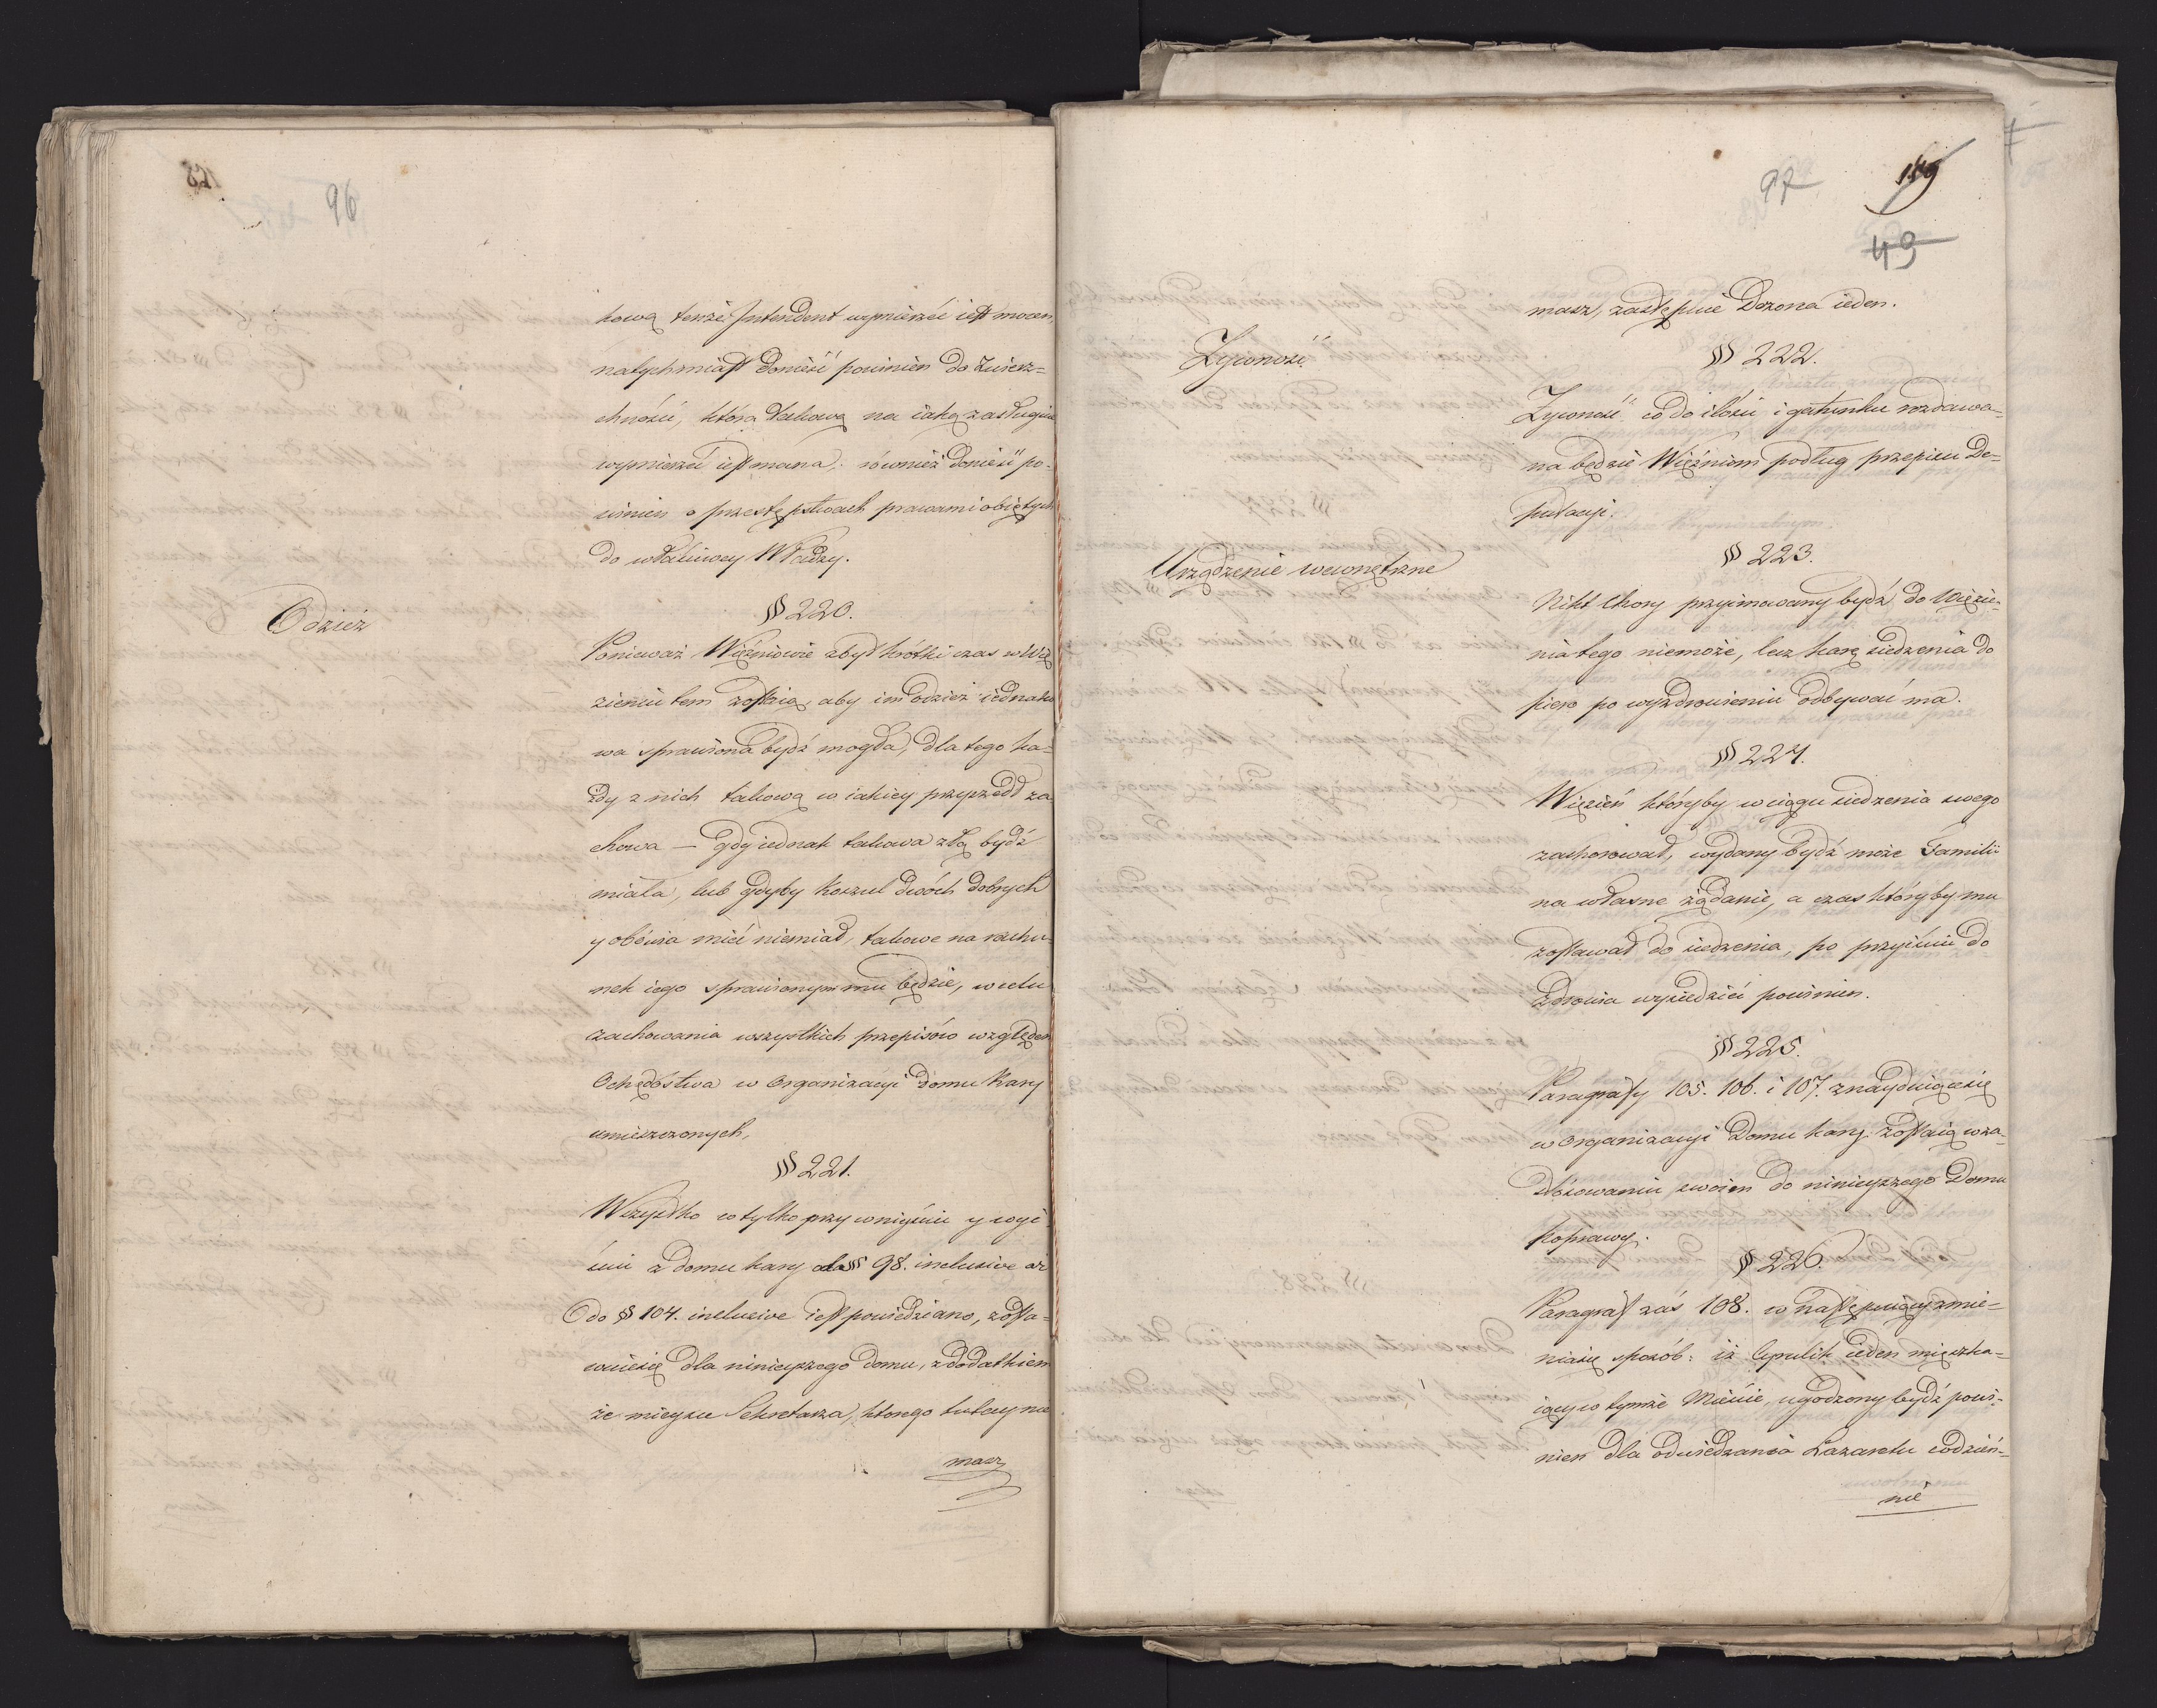 96
kową tenże Intendent wymierzéć iest mocen,
natychmiast donieść powinien do Zwierz=
chności, która takową na iaką zasługuie
wymierzać iest mana; również donieść po-
winien o przestępstwach prawami obiętych
do właściwey Władzy.
Odzież
§ 220.
Ponieważ Więźniowie zbyt krótki czas w Wię
zieniu tem zostaią, aby im odzież iednako
wa sprawiona bydź mogła, dla tego ka=
żdy z nich takową w iakiey przyszedł za
chowa — gdy iednak takowa złą bydź
miała, lub gdyby koszul dwóch dobrych
y obówia mieć niemiał, takowe na rachu-
nek iego sprawionym mu będzie, w celu
zachowania wszystkich przepisów względem
Ochędóstwa w Organizacyi Domu Kary
umieszczonych,
§ 221.
Wszystko co tylko przy wniyściu y wyi
ściu z domu kary od § 98. inclusive aż
do § 104. inclusive iest powiedziano, zosta=
wuie się dla ninieyszego domu, z dodatkiem
że mieysce Sekretarza, ktorego tutay nie
masz
97
149
49
masz, zastępuie Dozorca ieden.
Zywność
§ 222.
Zywność co do ilości i gatunku rozdawa=
na będzie Więźniom podług przepisu De=
putacyi.
Urządzenie wewnętrzne
§ 223.
Nikt Chory przyimowany bydź do Więzie-
nia tego niemoże, lecz karę siedzenia do
piero po wyzdrowieniu odbywać ma.
§ 224.
Więzień któryby w ciągu siedzenia swego
zachorował, wydany bydź może Familii
na własne żądanie, a czas któryby mu
zostawał do siedzenia, po przyiściu do
Zdrowia wysiedzieć powinien.
§ 225.
Paragrafy 105. 106. i 107. znayduiące się
w Organizacyi Domu kary zostaią w za-
stósowaniu swoiem do ninieyszego Domu
Poprawy.
§ 226.
Paragraf zaś 108. w następuiący zmie=
nia się sposób: iż Cyrulik ieden mięszka=
iący w tymże Mieście, ugodzony bydź powi=
nien dla odwiedzania Lazaretu codzień=
nie